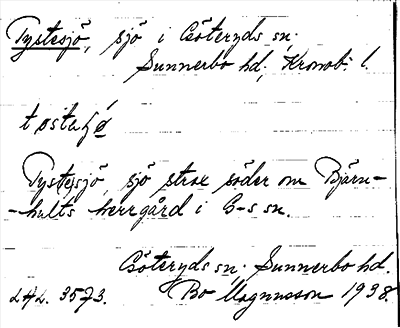 Tystesjö, sjö i Göteryds sn.
Sunnerbo hd, Kronob. l.
Tyst(e)sjö, sjö strax söder om Björn-
-hults herrgård i G-s sn.
Göteryds sn. Sunnerbo hd.
LAL. 3573. Bo Magnusson 1938.